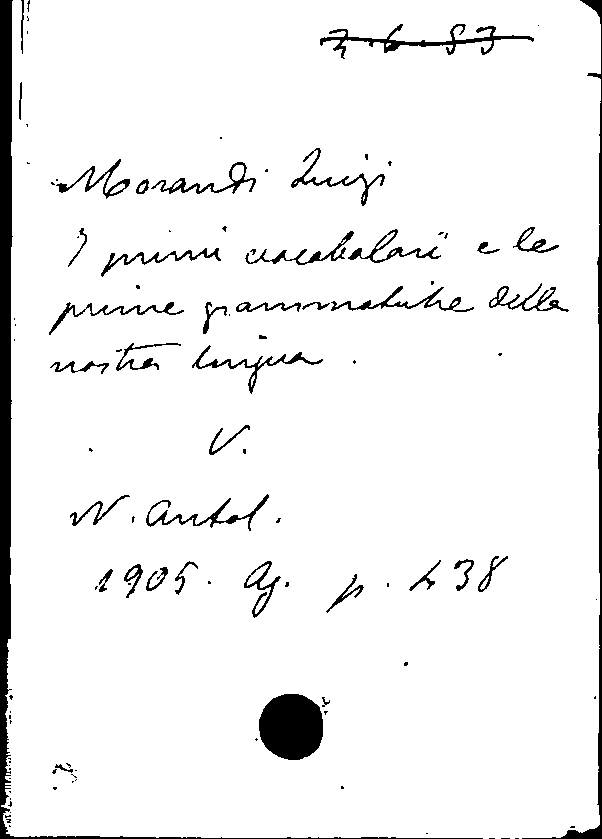 3.6.53
Morandi Luigi
I primi vocabolarii e le
prime grammatiche della
nostra lingua.
V.
N. Antol.
1905. Ag. p. 438